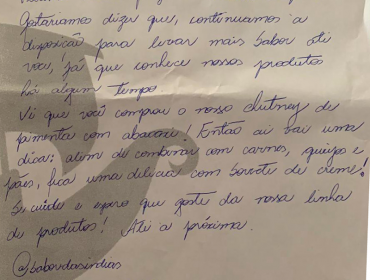 Gostaríamos dizer que, continuamos a
disposição para levar mais sabor até
você, já que conhece nossos produtos
há algum tempo
Vi que você comprou o nosso chutney de
pimenta com abacaxi! Então aí vai uma
dica: além de combinar com carnes, queijos e
pães, fica uma delícia com sorvete de creme!
Se cuide e espero que goste da nossa linha
de produtos! Até a próxima.
@sabordasindias